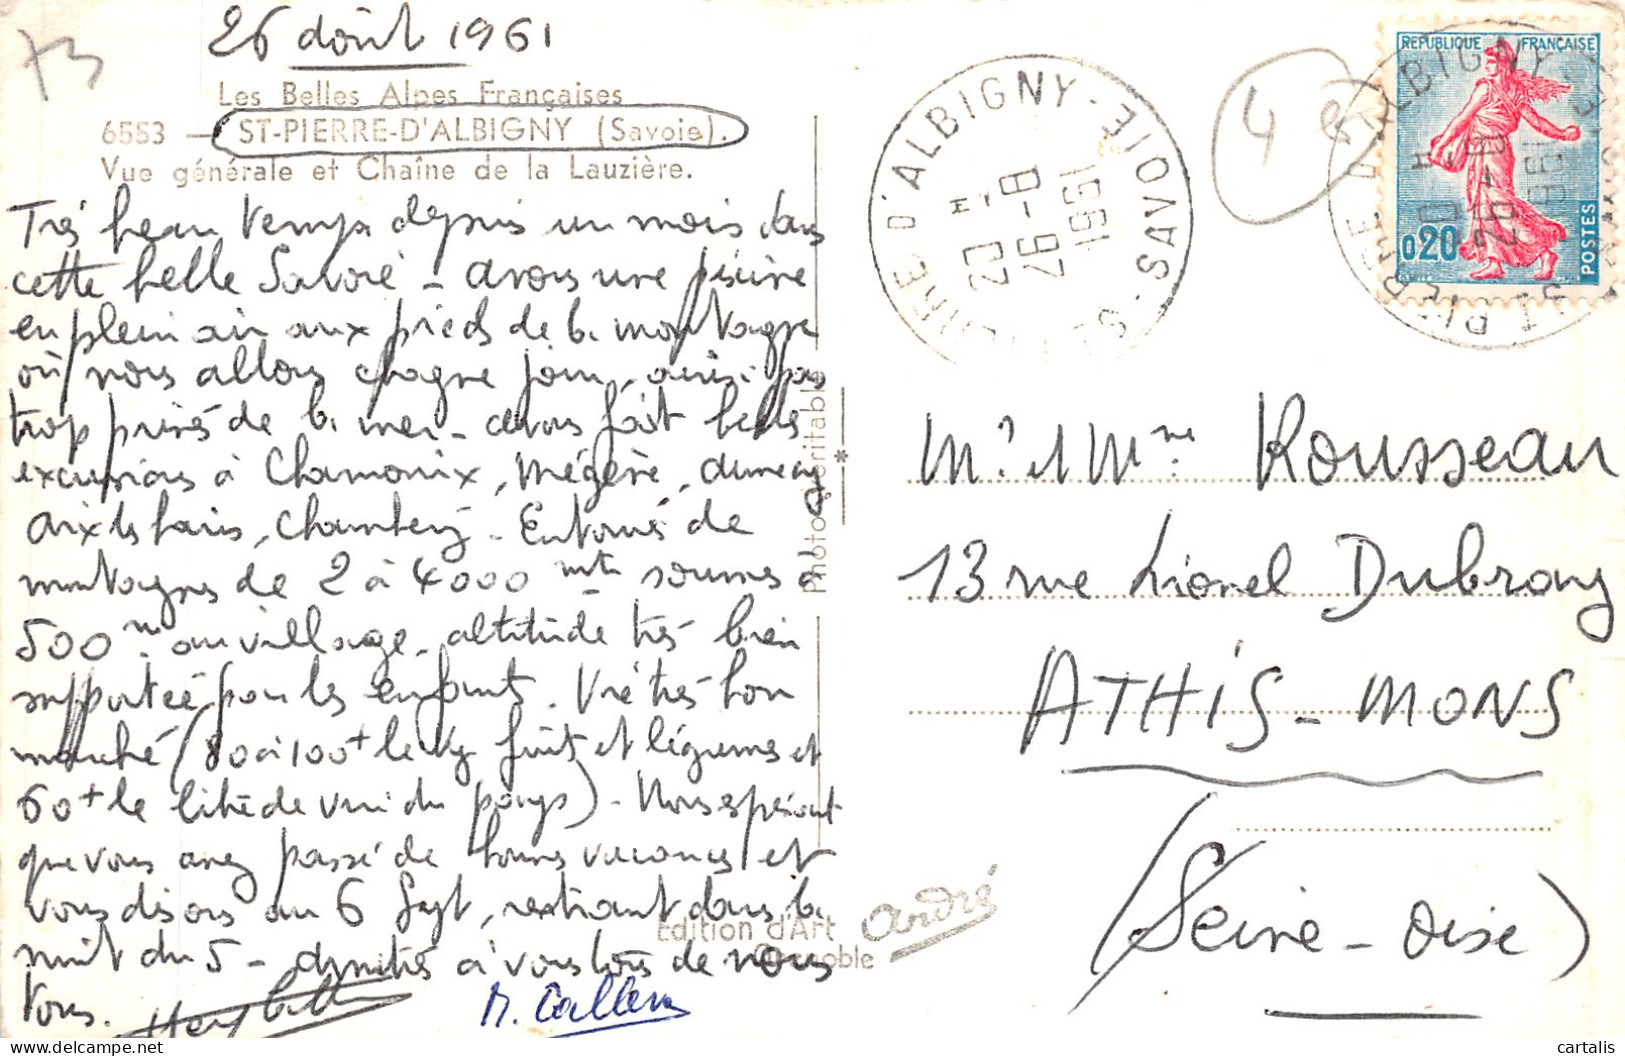 73
26 août 1961
Les Belles Alpes Françaises
6553 — ST-PIERRE-D'ALBIGNY (Savoie).
Vue générale et Chaîne de la Lauzière.
Très beau temps depuis un mois dans
cette belle Savoie - avons une piscine
en plein air aux pieds de la montagne
où nous allons chaque jour, ainsi pas
trop privés de la mer - avons fait belles
excursions à Chamonix, Mégève,
Aix les bains, Chambéry - Entourés de
montagnes de 2 à 4000 mts sommes à
500 m. au village - altitude très bien
supportée pour les enfants. Vie très bon
marché (80 à 100 le kg fruits et légumes et
60 le litre de vin du pays) - Nous espérons
que vous avez passé de bonnes vacances et
vous disons au 6 Sept, rentrant dans la
nuit du 5 - amitiés à vous tous de nous
tous.
M. Callens
Photo véritable
*
Edition d'Art André
Grenoble
ST-PIERRE D'ALBIGNY - SAVOIE
26-8
1961
48
REPUBLIQUE FRANÇAISE
0,20
POSTES
Mr et Mme Rousseau
13 rue Lionel Dubray
ATHIS-MONS
(Seine-Oise)
cartalis